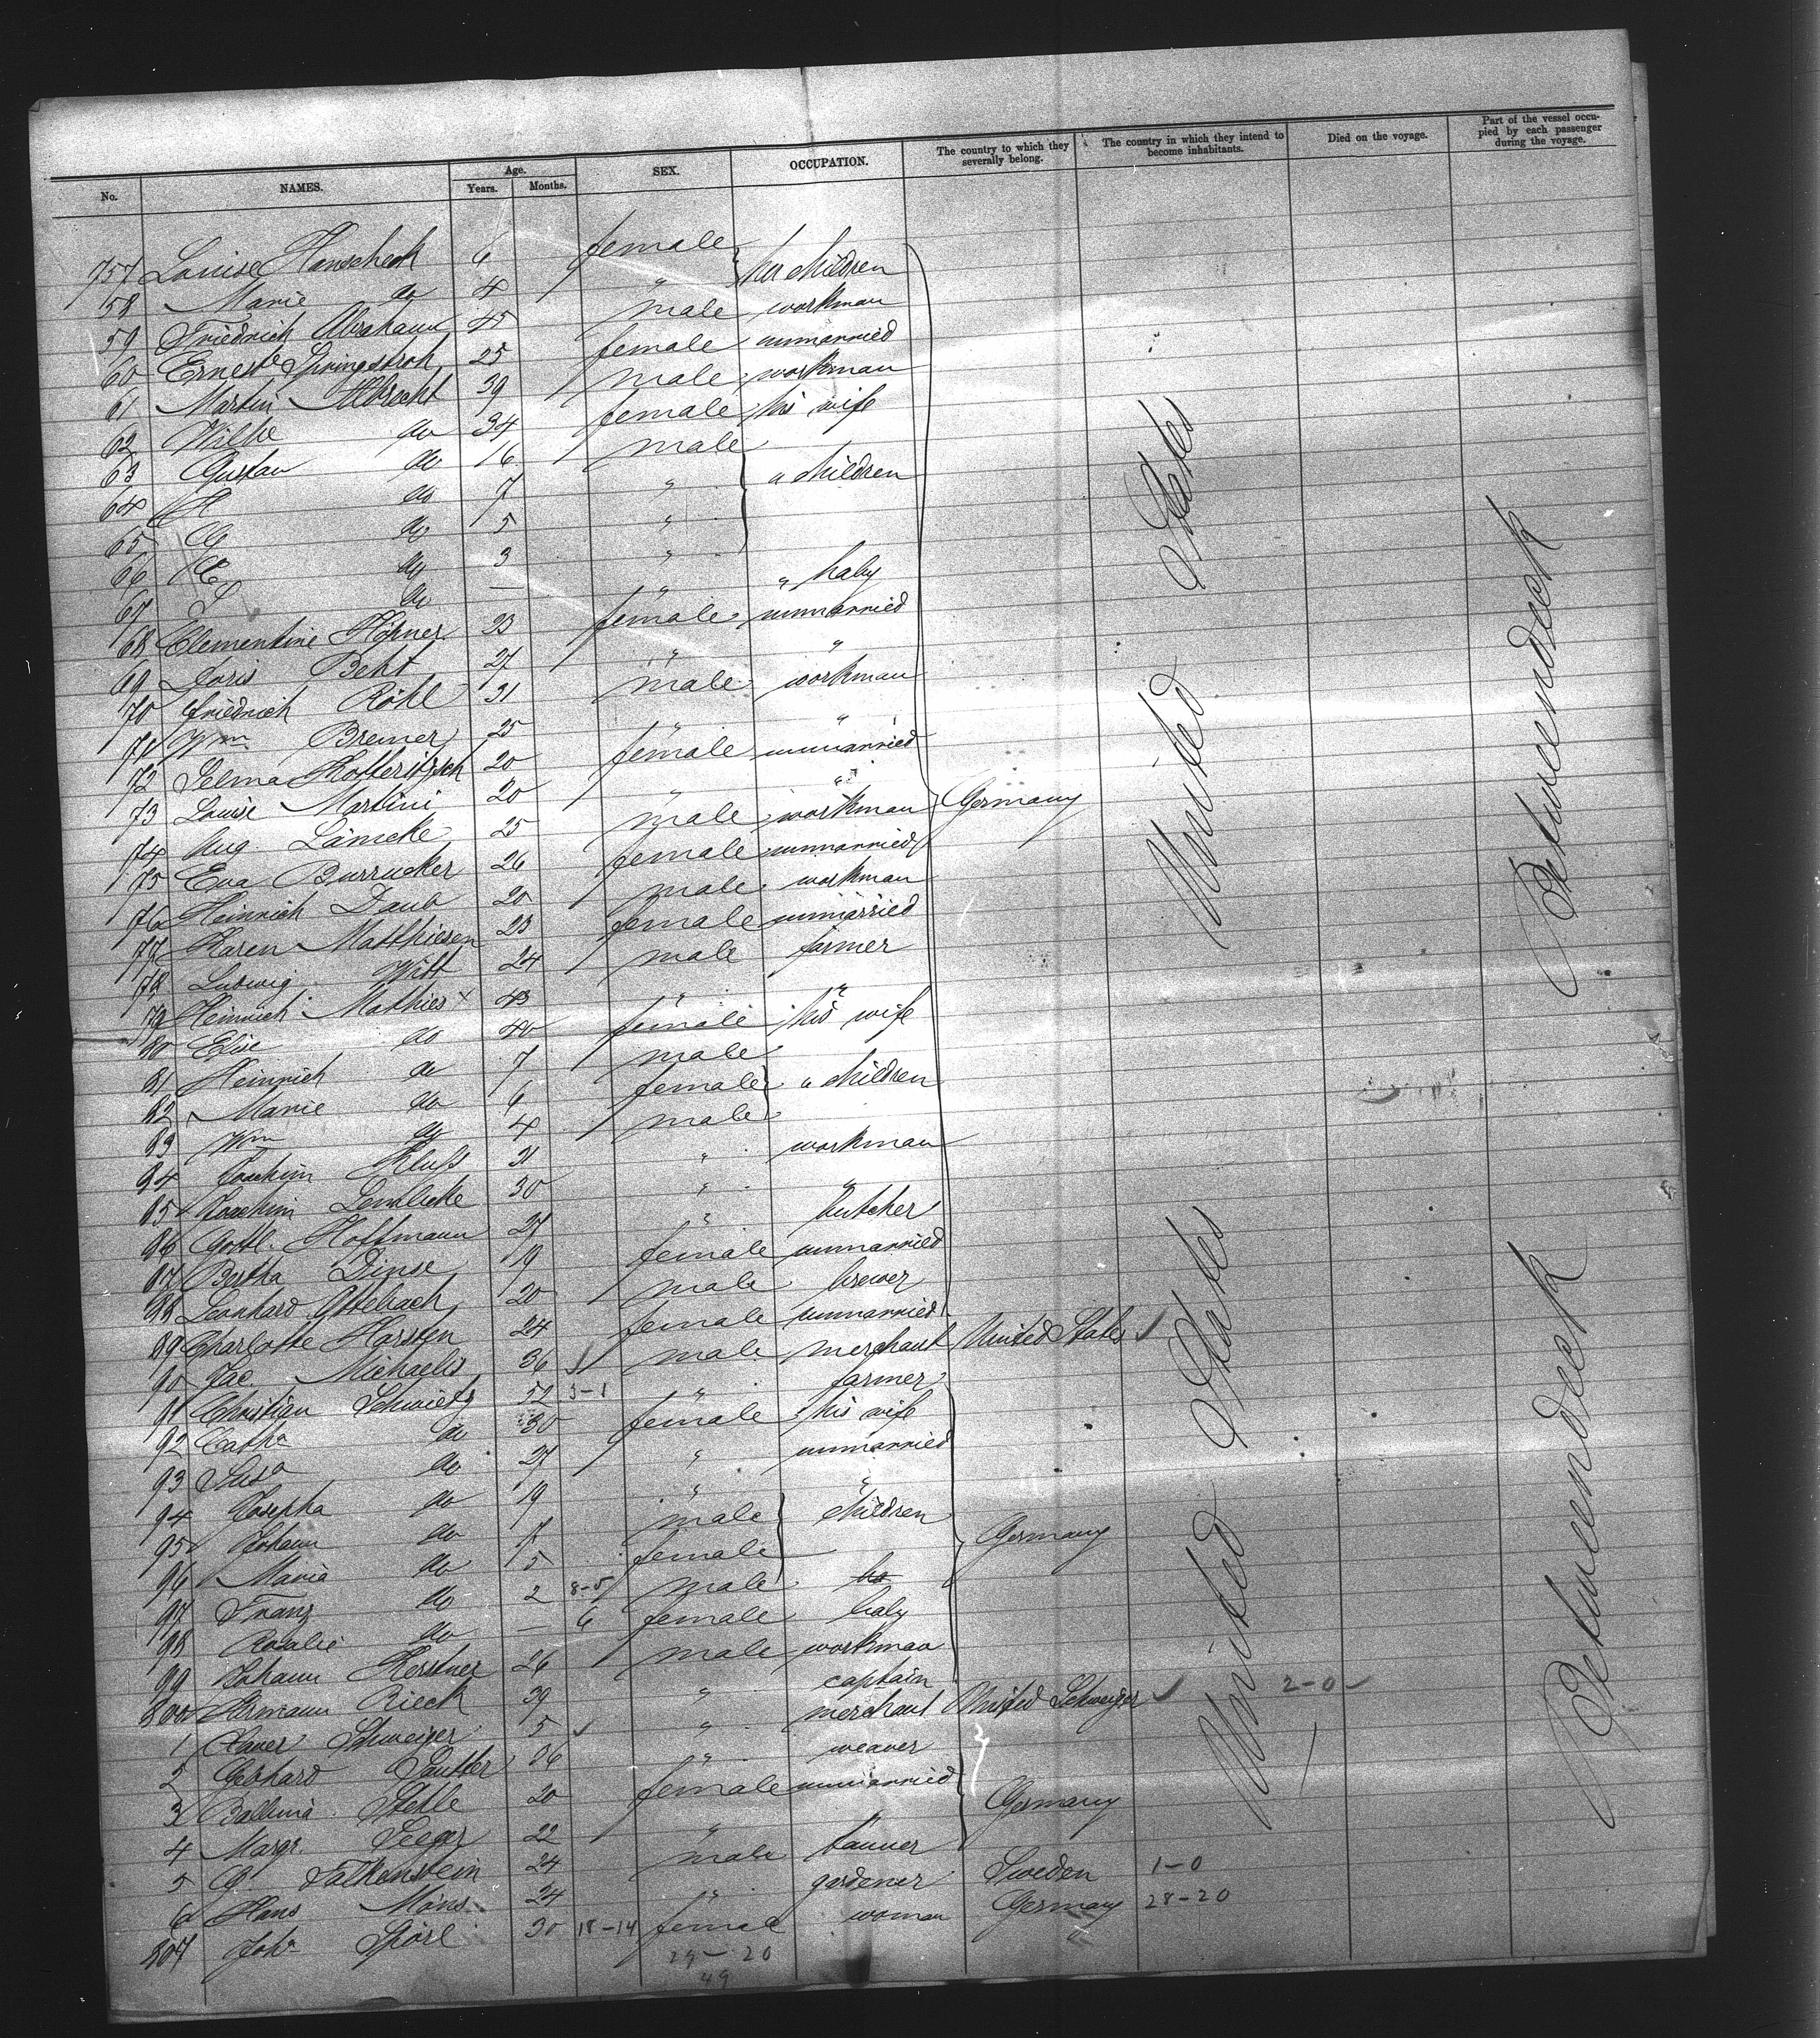 No. NAMES. Age. Years. Months. SEX. OCCUPATION. The country to which they severally belong. The country in which they intend to become inhabitants. Died on the voyage. Part of the vessel occupied by each passenger during the voyage.
757 Louise Hanscheck 6 female her children
58 Marie do 4 "
59 Friedrich Abraham 45 male workman
60 Ernest Springstroh 25 female unmarried
61 Martin Albrecht 39 male workman
62 Wilhe do 34 female his wife
63 Gustav do 16 male " children
64 H do 7 "
65 do 5 "
66 do 3 "
67 do — " " baby
68 Clementine Höpner 23 female unmarried
69 Doris Beht 27 " "
70 Friedrich Röhl 31 male workman
71 Wm Bremer 25 " "
72 Selma Kotteritzsch 20 female unmarried
73 Louise Martini 20 " "
74 Aug. Lämcke 25 male workman Germany
75 Eva Burrucker 26 female unmarried
76 Heinrich Daub 20 male workman
77 Karen Matthiesen 23 female unmarried
78 Ludwig Witt 24 male farmer
79 Heinrich Mathies x 43 " "
80 Elise do 40 female his wife
81 Heinrich do 7 male
82 Marie do 6 female " children
83 Wm do 4 male
84 Joachim Kluss 31 " workman
85 Joachim Lembcke 30 " "
86 Gottl. Hoffmann 27 " butcher
87 Bertha Dinse 19 female unmarried
88 Leonhard Ottelbach 20 male brewer
89 Charlotte Horsten 24 female unmarried
90 Jac. Michaelis 36 male merchant United States
91 Christian Schmietz 52 3-1 " farmer
92 Catha do 30 female his wife
93 Susa do 27 " unmarried
94 Josepha do 19 " "
95 Johann do 7 male children Germany
96 Maria do 5 female
97 Franz do 2 8-5 male
98 Rosalie do — 6 female baby
99 Johann Kerstner 26 male workman
800 Hermann Rieck 39 " captain
1 Xaver Schweizer 5 " merchant United Schweizer 2-0
2 Gebhard Sautter 26 " weaver
3 Balbina Stehle 20 female unmarried
4 Margr. Seeger 22 " Germany
5 G Falkenstein 24 male tanner
6 Hans Måns 24 " gardener Sweden 1-0
807 Joha Spörl 30 18-14 female woman Germany 28-20
29-20
49
United States
United States
Betweendeck
Betweendeck